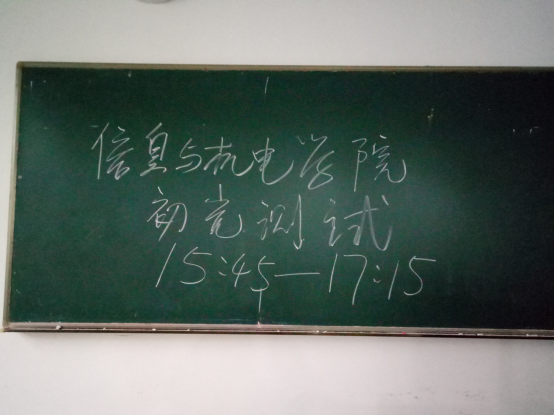 信息与机电学院
初党测试
15:45—17:15